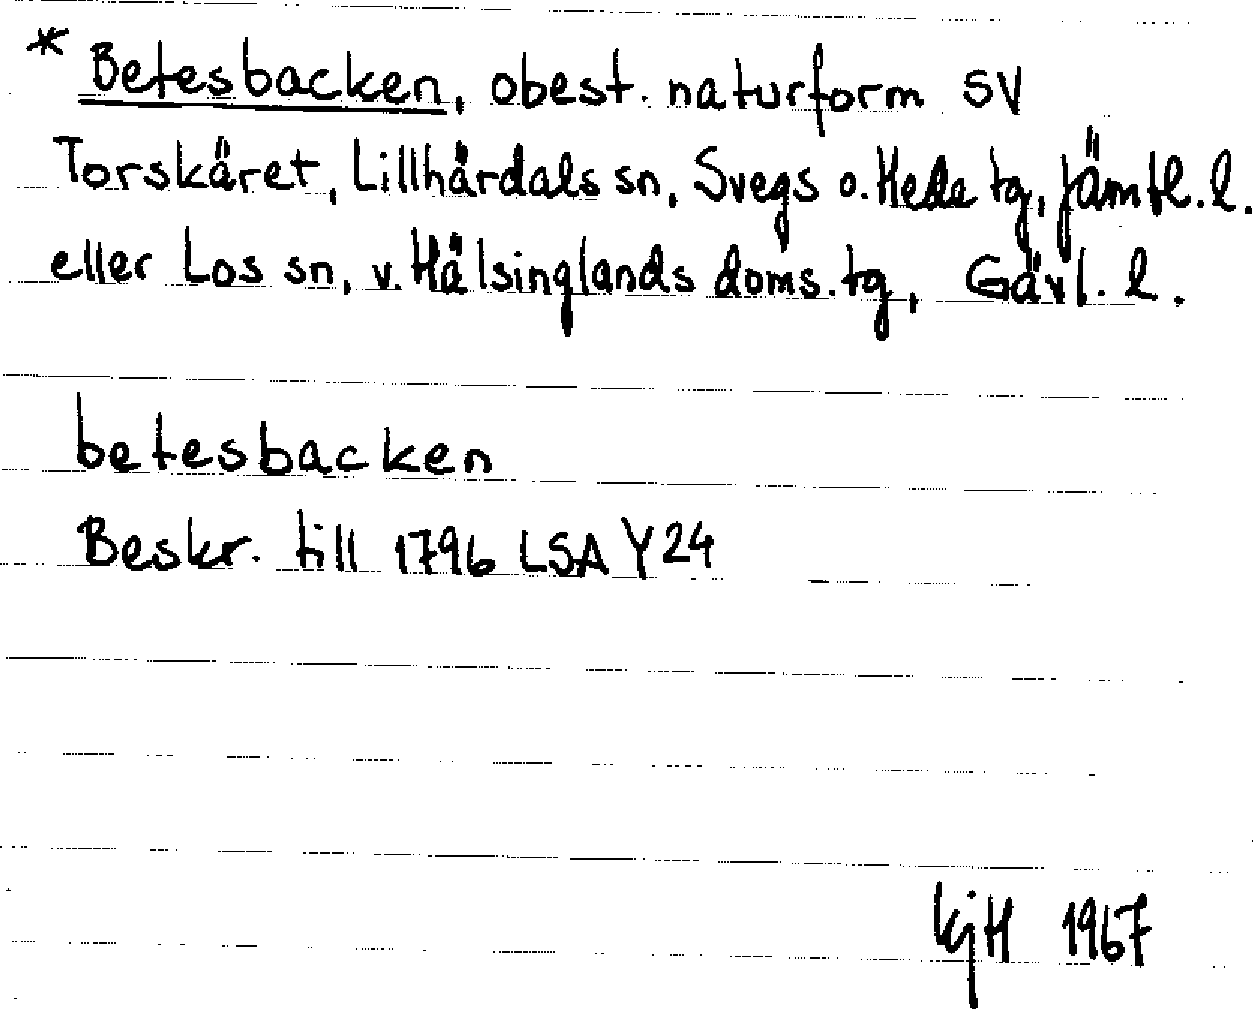 * Betesbacken, obest. naturform SV
Torskäret, Lillhärdals sn, Svegs o. Hede tg, Jämtl. l.
eller Los sn, v. Hälsinglands doms. tg, Gävl. l.
betesbacken
Beskr. till 1796 LSA Y24
KjH 1967